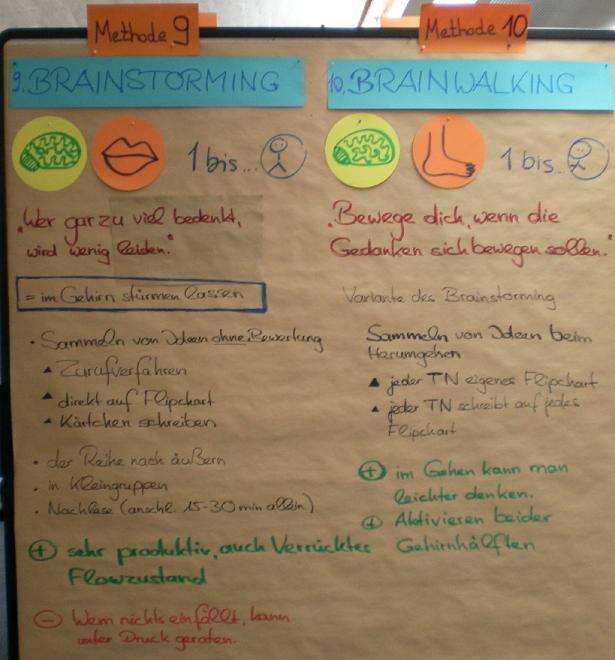 Methode 9
9. BRAINSTORMING
1 bis...
"Wer gar zu viel bedenkt,
wird wenig leisten."
= im Gehirn stürmen lassen
• Sammeln von Ideen ohne Bewertung
▲ Zurufverfahren
▲ direkt auf Flipchart
▲ Kärtchen schreiben
• der Reihe nach äußern
• in Kleingruppen
• Nachlese (anschl. 15-30 min allein)
+ sehr produktiv, auch Verrücktes
Flowzustand
- Wem nichts einfällt, kann
unter Druck geraten.
Methode 10
10. BRAINWALKING
1 bis...
"Bewege dich, wenn die
Gedanken sich bewegen sollen."
Variante des Brainstorming
Sammeln von Ideen beim
Herumgehen
▲ jeder TN eigenes Flipchart
▲ jeder TN schreibt auf jedes
Flipchart
+ im Gehen kann man
leichter denken.
+ Aktivieren beider
Gehirnhälften